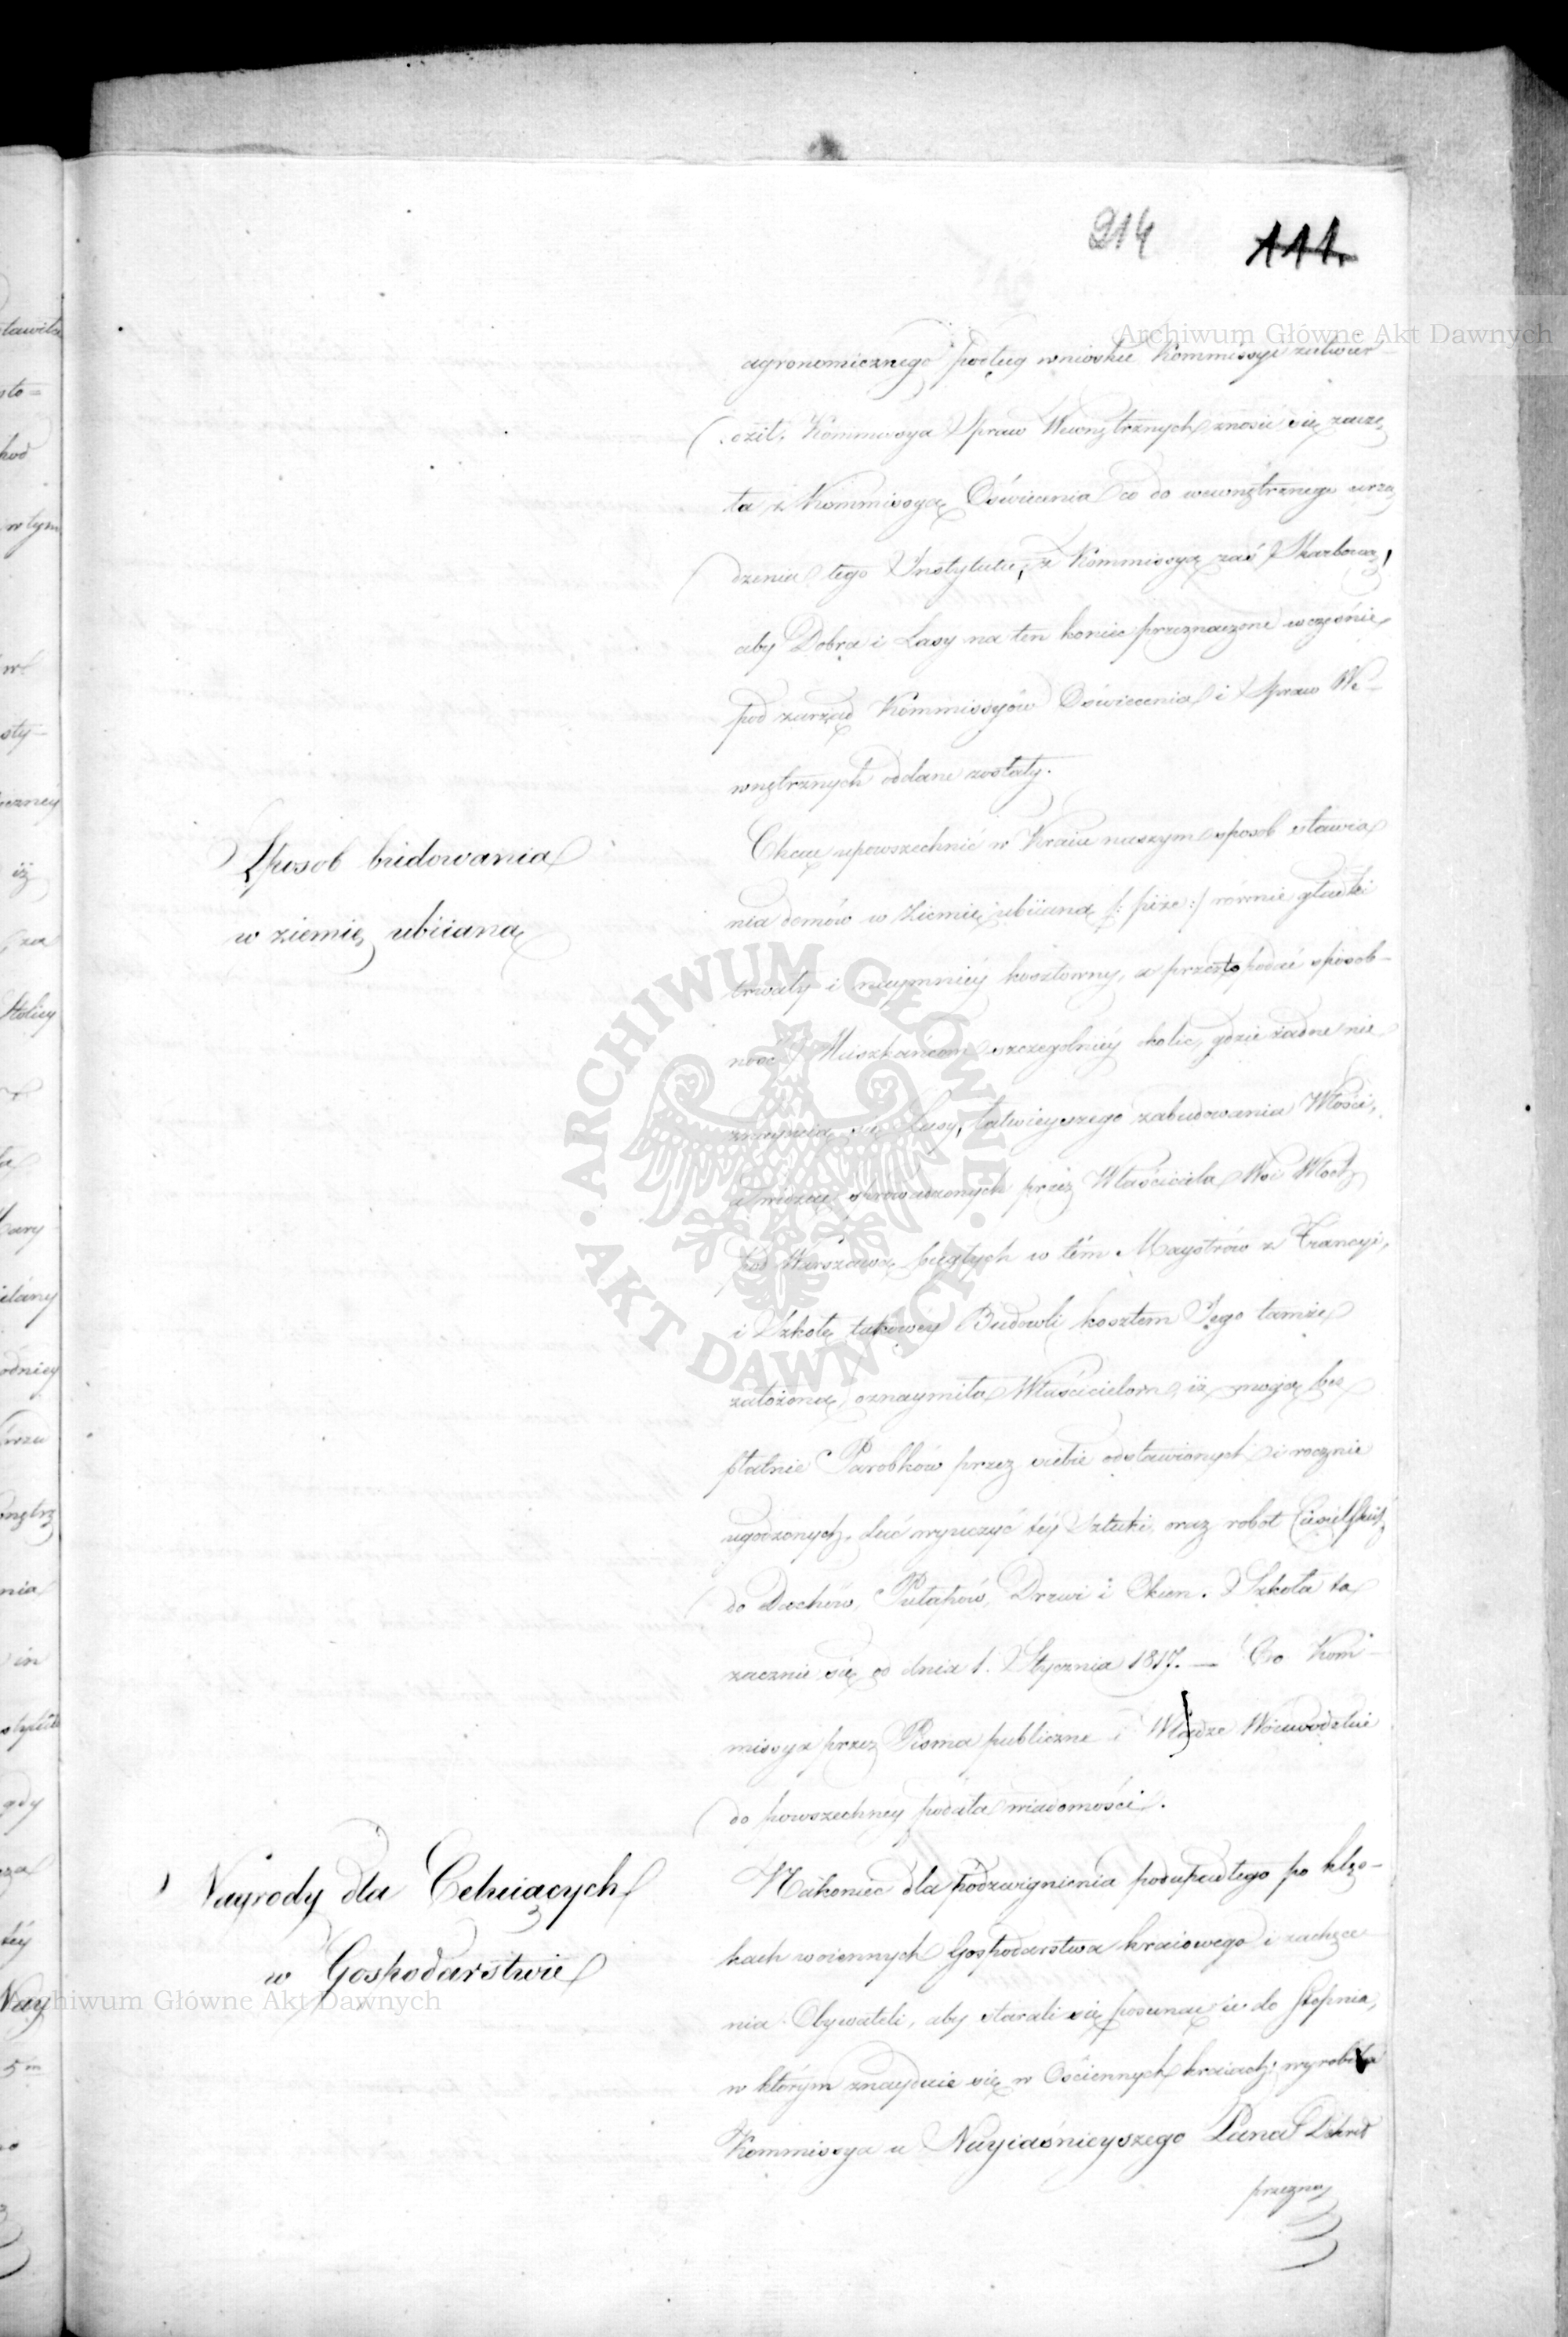 214 111.
Archiwum Główne Akt Dawnych
agronomicznego podług wniosku Kommissyi zatwier-
dził, Kommissya Spraw Wewnętrznych znosić się zaczę
ta z Kommissyą Oświecenia co do wewnętrznego urzą
dzenia tego Instytutu, z Kommissyą zaś Skarbową,
aby Dobra i Lasy na ten koniec przeznaczone wcześnie
pod zarząd Kommissyów Oświecenia i Spraw We-
wnętrznych oddane zostały.
Sposob budowania
w ziemię ubiianą
Chcąc upowszechnić w Kraiu naszym sposob stawia
nia domów w Ziemię ubiianą /: pize :/ rownie gładki
trwały i naymniéy kosztowny, a przezto podać sposob-
ność Mieszkańcom szczegolniéy okolic, gdzie żadne nie
znayduią się Lasy, łatwieyszego zabudowania Włości,
i widząc sprowadzonych przez Właściciela Wsi Włoch
pod Warszawą biegłych w tém Maystrów z Francyi,
i Szkołę takowey Budowli kosztem Jego tamże
założoną, oznaymiła Właścicielom, iż mogą bez
płatnie Parobków przez siebie odstawionych i rocznie
ugodzonych, dać wyuczyć téy Sztuki, oraz robot Ciesielskich
do Dachów, Pułapów, Drzwi i Okien. Szkoła ta
zacznie się od dnia 1. Stycznia 1817. — Co Kom-
missya przez Pisma publiczne i Władze Woiewodzkie
do powszechney podała wiadomości.
Nagrody dla Celuiących
w Gospodarstwie
Nakoniec dla podzwignienia podupadłego po klęs-
kach woiennych Gospodarstwa kraiowego i zachęce
nia Obywateli, aby starali się posunąć ie do stopnia,
w którym znayduie się w Ościennych kraiach; wyrobiła
Kommissya u Nayiaśnieyszego Pana Dekret
przezna
ARCHIWUM GŁÓWNE
AKT DAWNYCH
Archiwum Główne Akt Dawnych